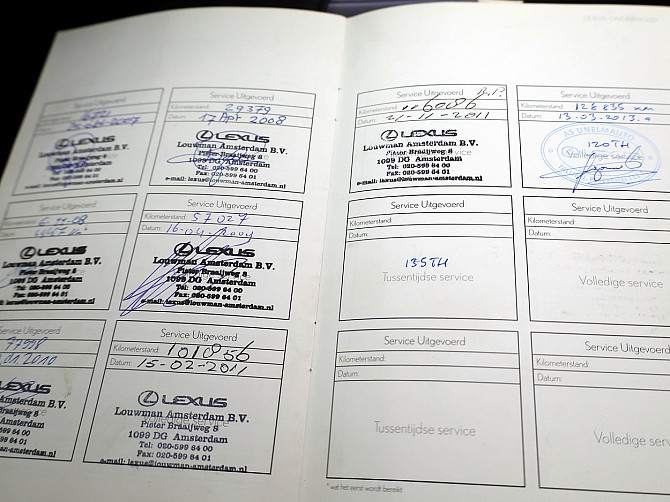 Service Uitgevoerd
LEXUS
Louwman Amsterdam B.V.
Pieter Braaijweg 8
1099 DG Amsterdam
Tel: 020-599 64 00
Fax: 020-599 64 01
Service Uitgevoerd
Kilometerstand: 29379
Datum: 17 Apr 2008
LEXUS
Louwman Amsterdam B.V.
Pieter Braaijweg 8
1099 DG Amsterdam
Tel: 020-599 64 00
Fax: 020-599 64 01
e-mail: lexus@louwman-amsterdam.nl
Service Uitgevoerd
LEXUS
Louwman Amsterdam B.V.
Pieter Braaijweg 8
1099 DG Amsterdam
Tel: 020-599 64 00
Fax: 020-599 64 01
Service Uitgevoerd
Kilometerstand: 57027
Datum: 16-04-2009
LEXUS
Louwman Amsterdam B.V.
Pieter Braaijweg 8
1099 DG Amsterdam
Tel: 020-599 64 00
Fax: 020-599 64 01
e-mail: lexus@louwman-amsterdam.nl
Service Uitgevoerd
77998
01 2010
LEXUS
Amsterdam B.V.
Braaijweg 8
Amsterdam
599 64 00
599 64 01
amsterdam.nl
Service Uitgevoerd
Kilometerstand: 101856
Datum: 15-02-2011
LEXUS
Louwman Amsterdam B.V.
Volledige service
Pieter Braaijweg 8
1099 DG Amsterdam
Tel: 020-599 64 00
Fax: 020-599 64 01
e-mail: lexus@louwman-amsterdam.nl
Service Uitgevoerd
Kilometerstand:
Datum: 21-11-2011
LEXUS
Louwman Amsterdam B.V.
Pieter Braaijweg 8
1099 DG Amsterdam
Tel: 020-599 64 00
Fax: 020-599 64 01
e-mail: lexus@louwman-amsterdam.nl
Service Uitgevoerd
Kilometerstand: 128 835 km
Datum: 13.03.2013.
AS UNELMAUTO
120TH
Volledige service
Service Uitgevoerd
Kilometerstand:
Datum:
135TH
Tussentijdse service
Service Uitgevoerd
Kilometerstand:
Datum:
Volledige service
Service Uitgevoerd
Kilometerstand:
Datum:
Tussentijdse service
Service Uitgevoerd
Kilometerstand:
Datum:
Volledige service
* wat het eerst wordt bereikt